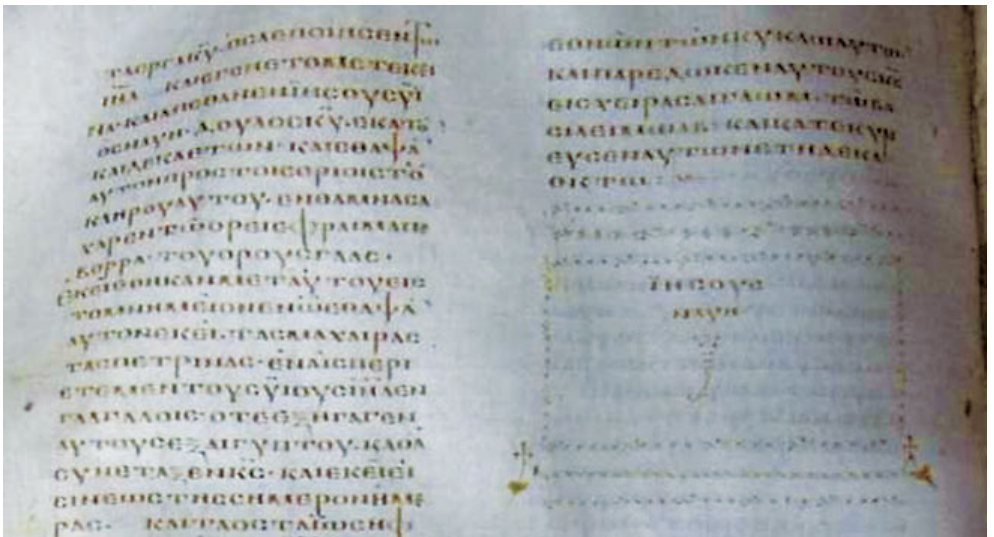 ΤΑΕΡΓΑΚ̅Υ̅·ΟϹΑΕΠΟΙΗϹΕΝΤΩ
ΙΗ̅Λ̅ ΚΑΙΕΓΕΝΕΤΟΜΕΤΕΚΕΙ
ΝΑ·ΚΑΙΑΠΕΘΑΝΕΝΪΗϹΟΥϹΥΪ
ΟϹΝΑΥΗ·ΔΟΥΛΟϹΚ̅Υ̅·ΕΚΑΤΟ̅
ΚΑΙΔΕΚΑΕΤΩΝ·ΚΑΙΕΘΑΨΑ̅
ΑΥΤΟΝΠΡΟϹΤΟΙϹΟΡΙΟΙϹΤΟΥ
ΚΛΗΡΟΥΑΥΤΟΥ·ΕΝΘΑΜΝΑϹΑ
ΧΑΡΕΝΤΩΟΡΕΙΕΦΡΑΙΜΑΠΟ
ΒΟΡΡΑ·ΤΟΥΟΡΟΥϹΓΑΑϹ·
ΕΚΕΙΕΘΗΚΑΝΜΕΤΑΥΤΟΥΕΙϹ
ΤΟΜΝΗΜΕΙΟΝΕΝΩΕΘΑΨΑ̅
ΑΥΤΟΝΕΚΕΙ·ΤΑϹΜΑΧΑΙΡΑϹ
ΤΑϹΠΕΤΡΙΝΑϹ·ΕΝΑΙϹΠΕΡΙ
ΕΤΕΜΕΝΤΟΥϹΥΪΟΥϹΙΗ̅Λ̅ΕΝ
ΓΑΛΓΑΛΟΙϹ·ΟΤΕΕΞΗΓΑΓΕΝ
ΑΥΤΟΥϹΕΞΑΙΓΥΠΤΟΥ·ΚΑΘΑ
ϹΥΝΕΤΑΞΕΝΚ̅Ϲ̅·ΚΑΙΕΚΕΙΕΙ
ϹΙΝΕΩϹΤΗϹϹΗΜΕΡΟΝΗΜΕ
ΡΑϹ· ΚΑΙΤΑΟϹΤΑΪΩϹΗΦ
ΕΘΝΩΝΤΩΝΚΥΚΛΩΑΥΤΩ̅
ΚΑΙΠΑΡΕΔΩΚΕΝΑΥΤΟΥϹΚ̅Ϲ̅
ΕΙϹΧΕΙΡΑϹΑΙΓΛΩΜ·ΤΩΒΑ
ϹΙΛΕΙΜΩΑΒ·ΚΑΙΚΑΤΕΚΥΡΙ
ΕΥϹΕΝΑΥΤΩΝΕΤΗΔΕΚΑ
ΟΚΤΩ:
ΪΗϹΟΥϹ
ΝΑΥΗ